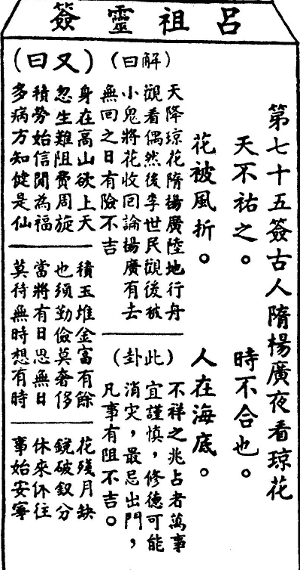 呂祖靈簽
第七十五簽古人隋楊廣夜看琼花
天不祐之。 時不合也。
花被風折。 人在海底。
(解曰)
天降琼花隋楊廣陸地行舟
觀看偶然後李世民觀後被
小鬼將花收回論楊廣有去
無回之日有險不吉
(此卦)
不祥之兆占者萬事
宜謹慎,修德可能
消災,最忌出門,
凡事有阻不吉。
(又曰)
身在高山欲上天
忽生難阻費周旋
積勞始信閒為福
多病方知健是仙
積玉堆金富有餘
也須勤儉莫奢侈
當將有日思無日
莫待無時想有時
花殘月缺
鏡破釵分
休來休往
事始安寧